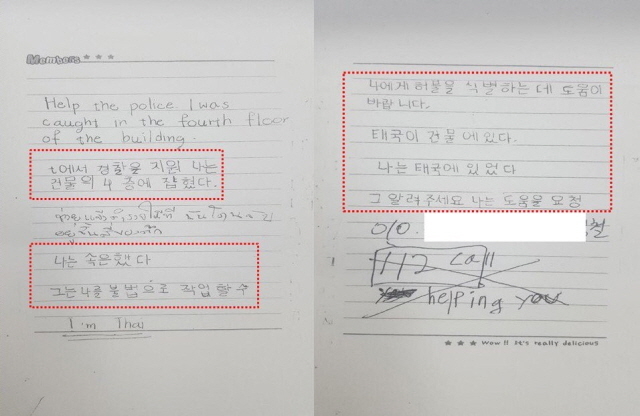 Members ★ ★ ★
Help the police. I was
caught in the fourth floor
of the building.
t에서 경찰을 지원 나는
건물의 4 층에 잡혔다.
나는 속은했다
그는 나를 불법으로 작업 할 수
I'm Thai
나에게 허물을 식별하는 데 도움이
바랍니다.
태국이 건물에 있다.
나는 태국에 있었다
그 알려주세요 나는 도움을 요청
010.
112 call
helping you
★ ★ ★ Wow!! It's really delicious